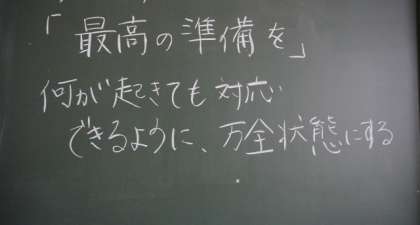 「最高の準備を」
何が起きても対応
できるように、万全状態にする